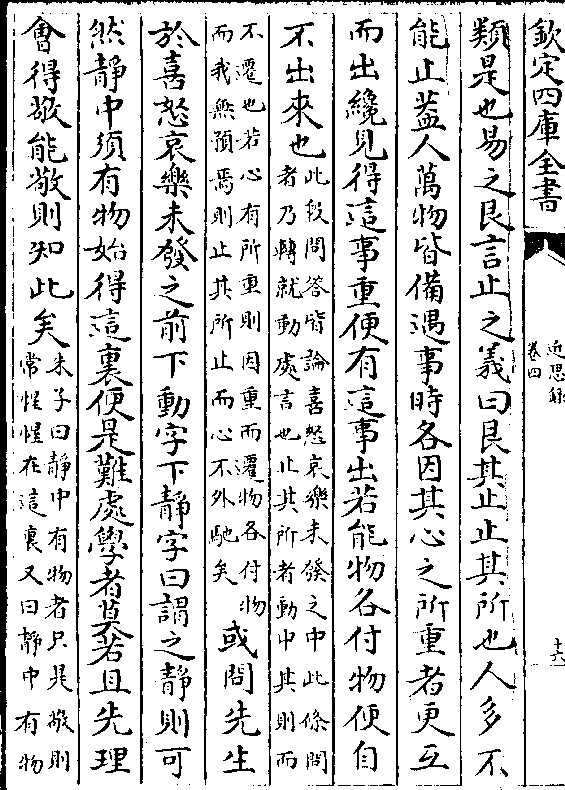 欽定四庫全書
近思錄
卷四
十六
類是也易之艮言止之義曰艮其止止其所也人多不
能止蓋人萬物皆備遇事時各因其心之所重者更互
而出纔見得這事重便有這事出若能物各付物便自
不出來也
此段問答皆論喜怒哀樂未發之中此條問
者乃轉就動處言也止其所者動中其則而
不遷也若心有所重則因重而遷物各付物
而我無預焉則止其所止而心不外馳矣
或問先生
於喜怒哀樂未發之前下動字下靜字曰謂之靜則可
然靜中須有物始得這裏便是難處學者莫若且先理
會得敬能敬則知此矣
朱子曰靜中有物者只是敬則
常惺惺在這裏又曰靜中有物